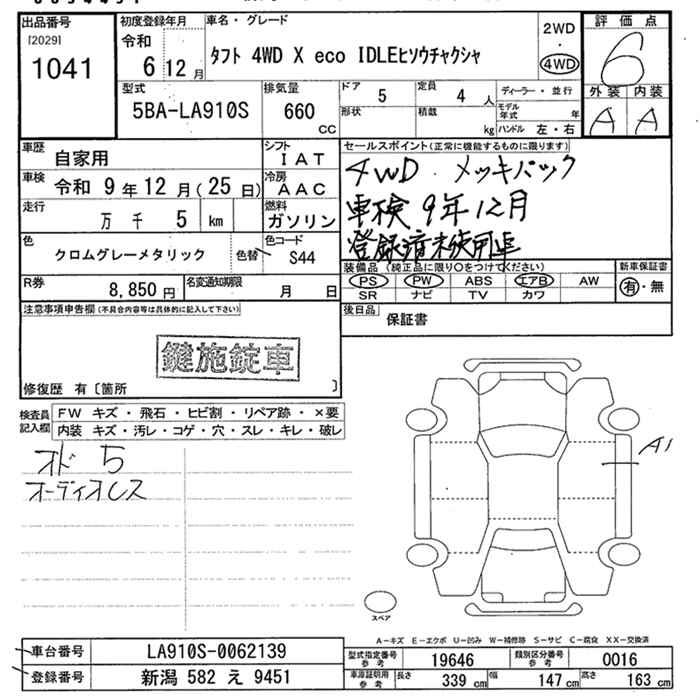 出品番号 初度登録年月 車名・グレード 2WD 評価点
[2029] 令和 タフト 4WD X eco IDLEヒソウチャクシャ 4WD 6
1041 6 12月
型式 排気量 ドア 5 定員 4人 ディーラー・並行 外装 内装
5BA-LA910S 660cc 形状 積載 kg モデル年式 年 A A
ハンドル 左・右
車歴 自家用 シフト IAT セールスポイント(正常に機能するものに限ります)
車検 令和 9年12月(25日) 冷房 AAC 4WD・メッキパック
走行 万 千 5 km 燃料 ガソリン 車検9年12月
色 クロムグレーメタリック 色替 色コード S44 登録済未使用車
装備品 (純正品に限り○をつけてください) 新車保証書
R券 8,850円 名変通知期限 月 日 PS PW ABS エアB AW 有・無
SR ナビ TV カワ
注意事項申告欄(不具合内容等は具体的に記入して下さい) 後日品 保証書
鍵施錠車
修復歴 有〔箇所 〕
検査員記入欄 FW キズ・飛石・ヒビ割・リペア跡・×要
内装 キズ・汚レ・コゲ・穴・スレ・キレ・破レ
オド 5 A1
オーディオレス
スペア
A-キズ E-エクボ U-凹み W-補修跡 S-サビ C-腐食 XX-交換済
車台番号 LA910S-0062139 型式指定番号 参考 19646 類別区分番号 参考 0016
登録番号 新潟 582 え 9451 車庫証明用 参考 長さ 339cm 幅 147cm 高さ 163cm